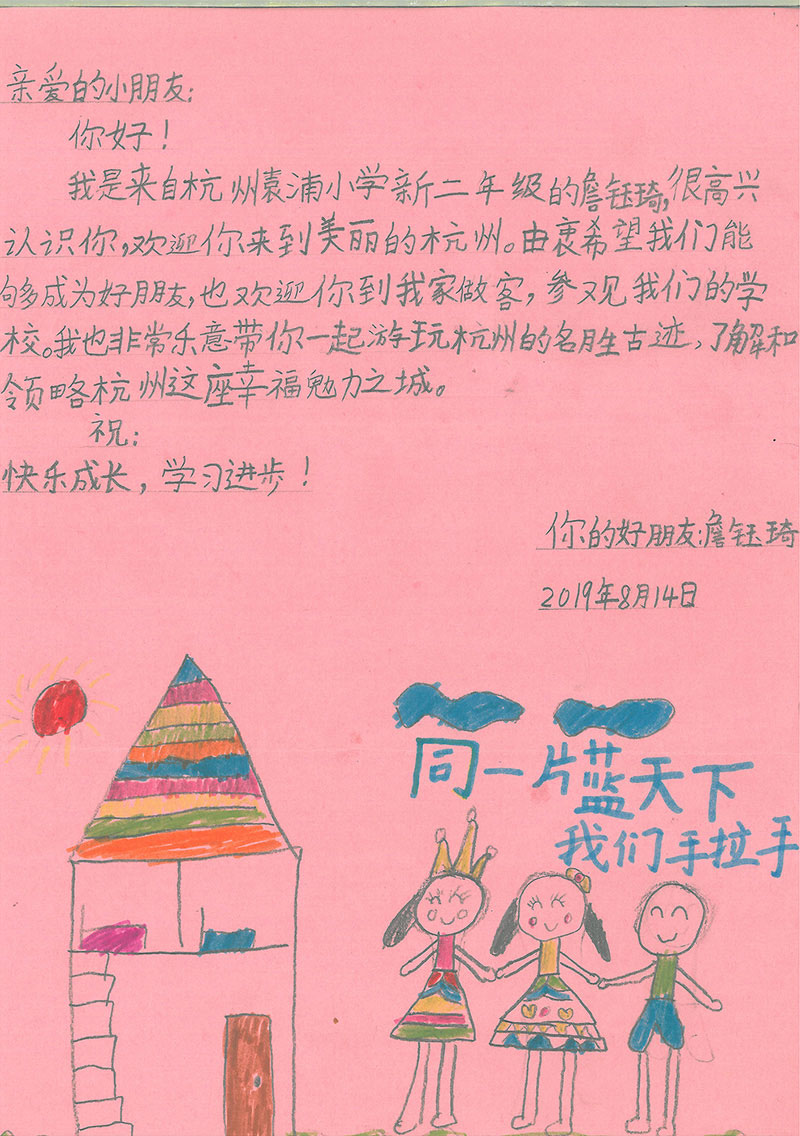 亲爱的小朋友:
你好!
我是来自杭州袁浦小学新二年级的詹钰琦,很高兴
认识你,欢迎你来到美丽的杭州。由衷希望我们能
够成为好朋友,也欢迎你到我家做客,参观我们的学
校。我也非常乐意带你一起游玩杭州的名胜古迹、了解和
领略杭州这座幸福勉力之城。
祝:
快乐成长,学习进步!
你的好朋友:詹钰琦
2019年8月14日
同一片蓝天下
我们手拉手